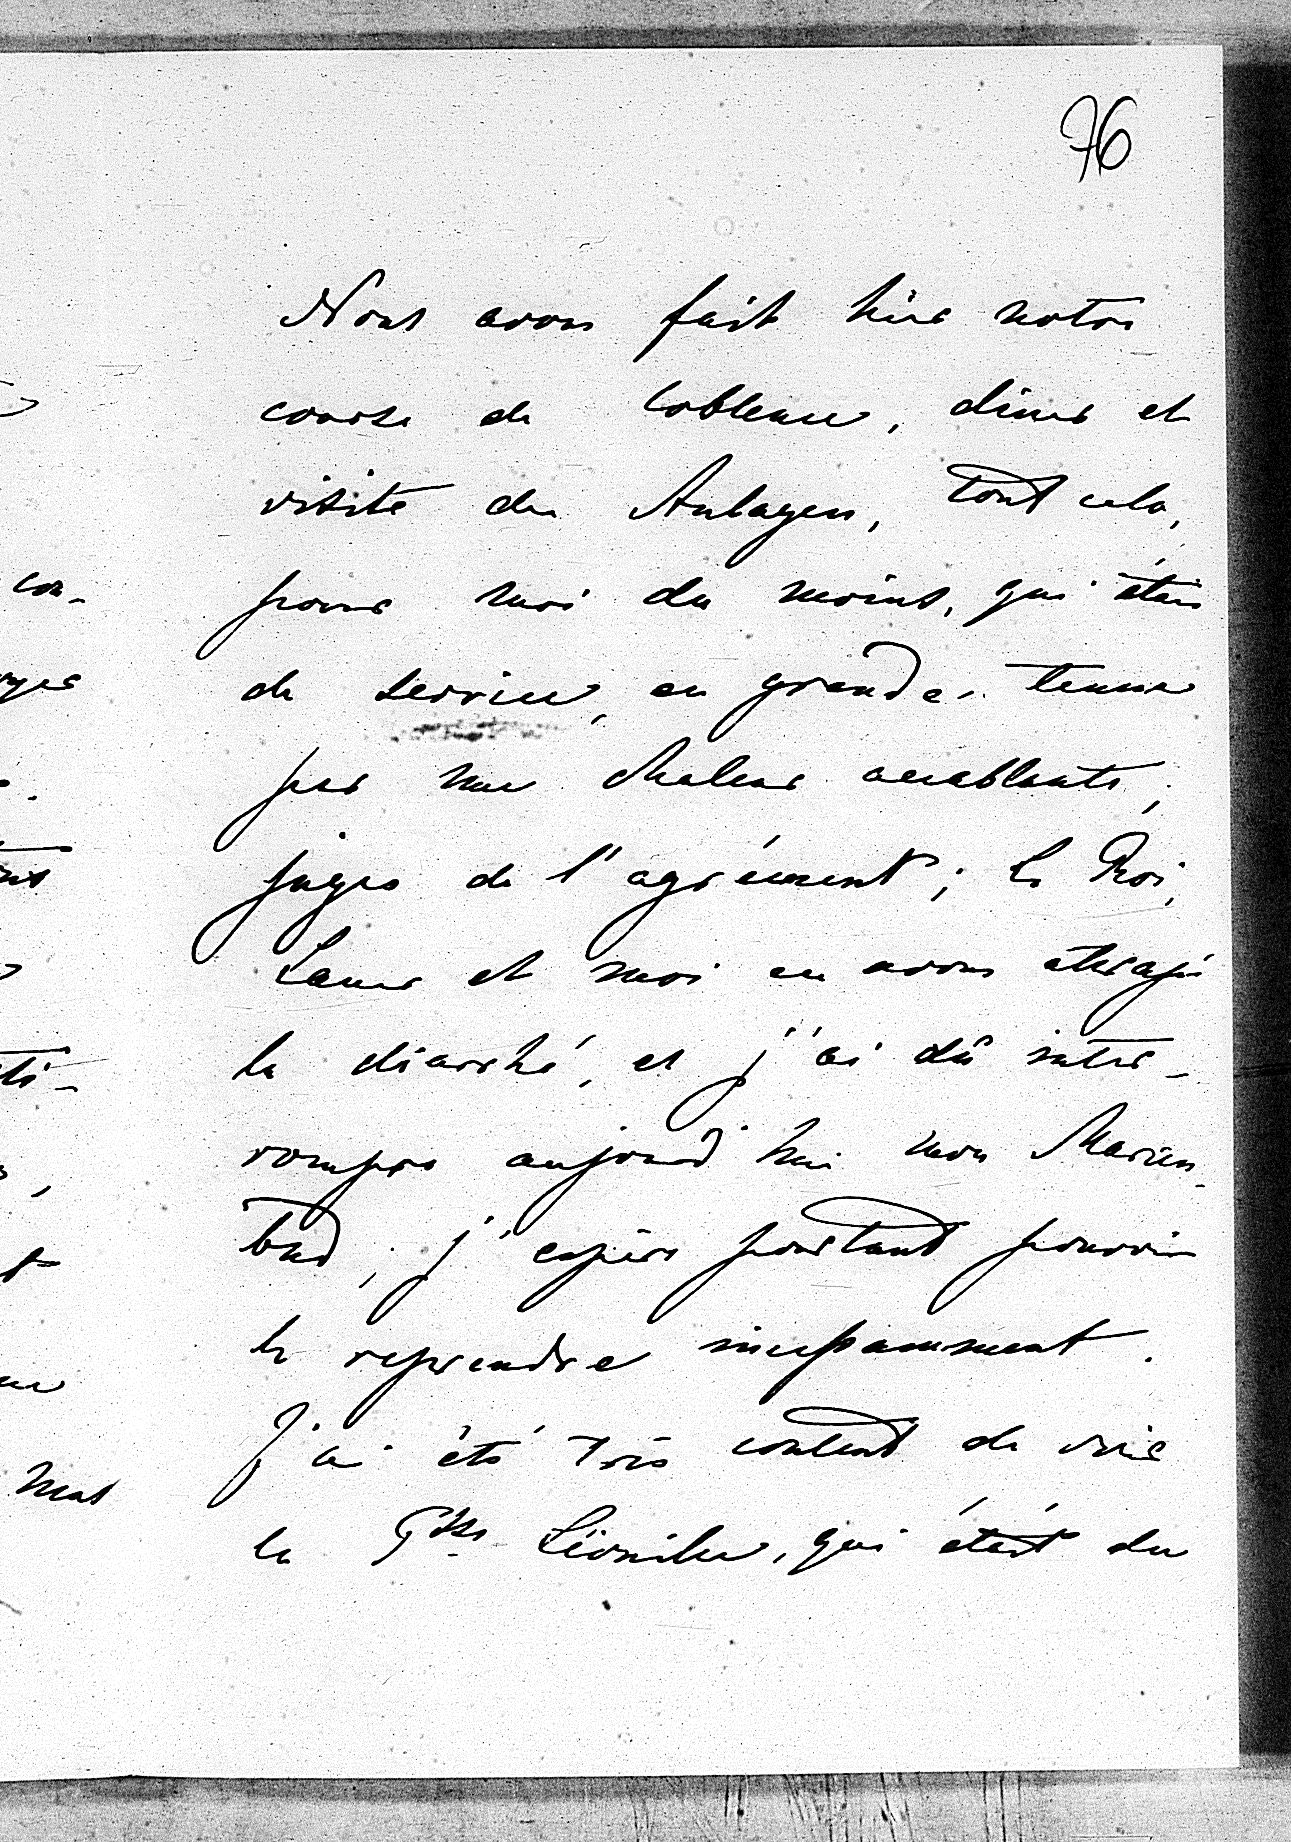 76
Nous avons fait hier notre
course de Coblence, diner et
visite des Anlagen, tout cela,
pour moi du moins, qui étais
de service, en grande tenue
par une chaleur accablante,
jugez de l'agrément; le Roi,
Lauer et moi en avons attrapé
la diarrhé, et j'ai dû inter-
rompre aujourd'hui mon Marien-
bad, j'espère pourtant pouvoir
le reprendre incessamment.
J'ai été très content de voir
la Psse Léonille, qui était du
con-
mas